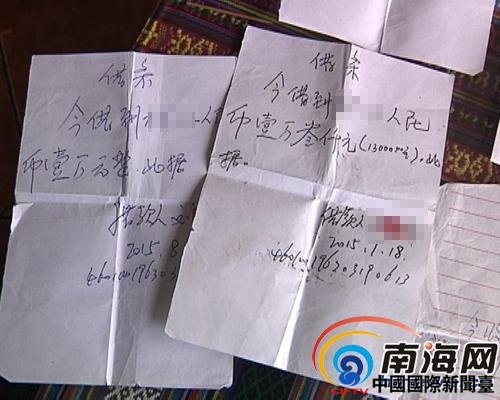 借条
今借到 人民
币壹万元整.此据
借款人
2015.8
借条
今借到 人民
币壹万叁仟元(13000元).此
据。
借款人
2015.1.18.
南海网
中國國際新聞臺
CIPTV